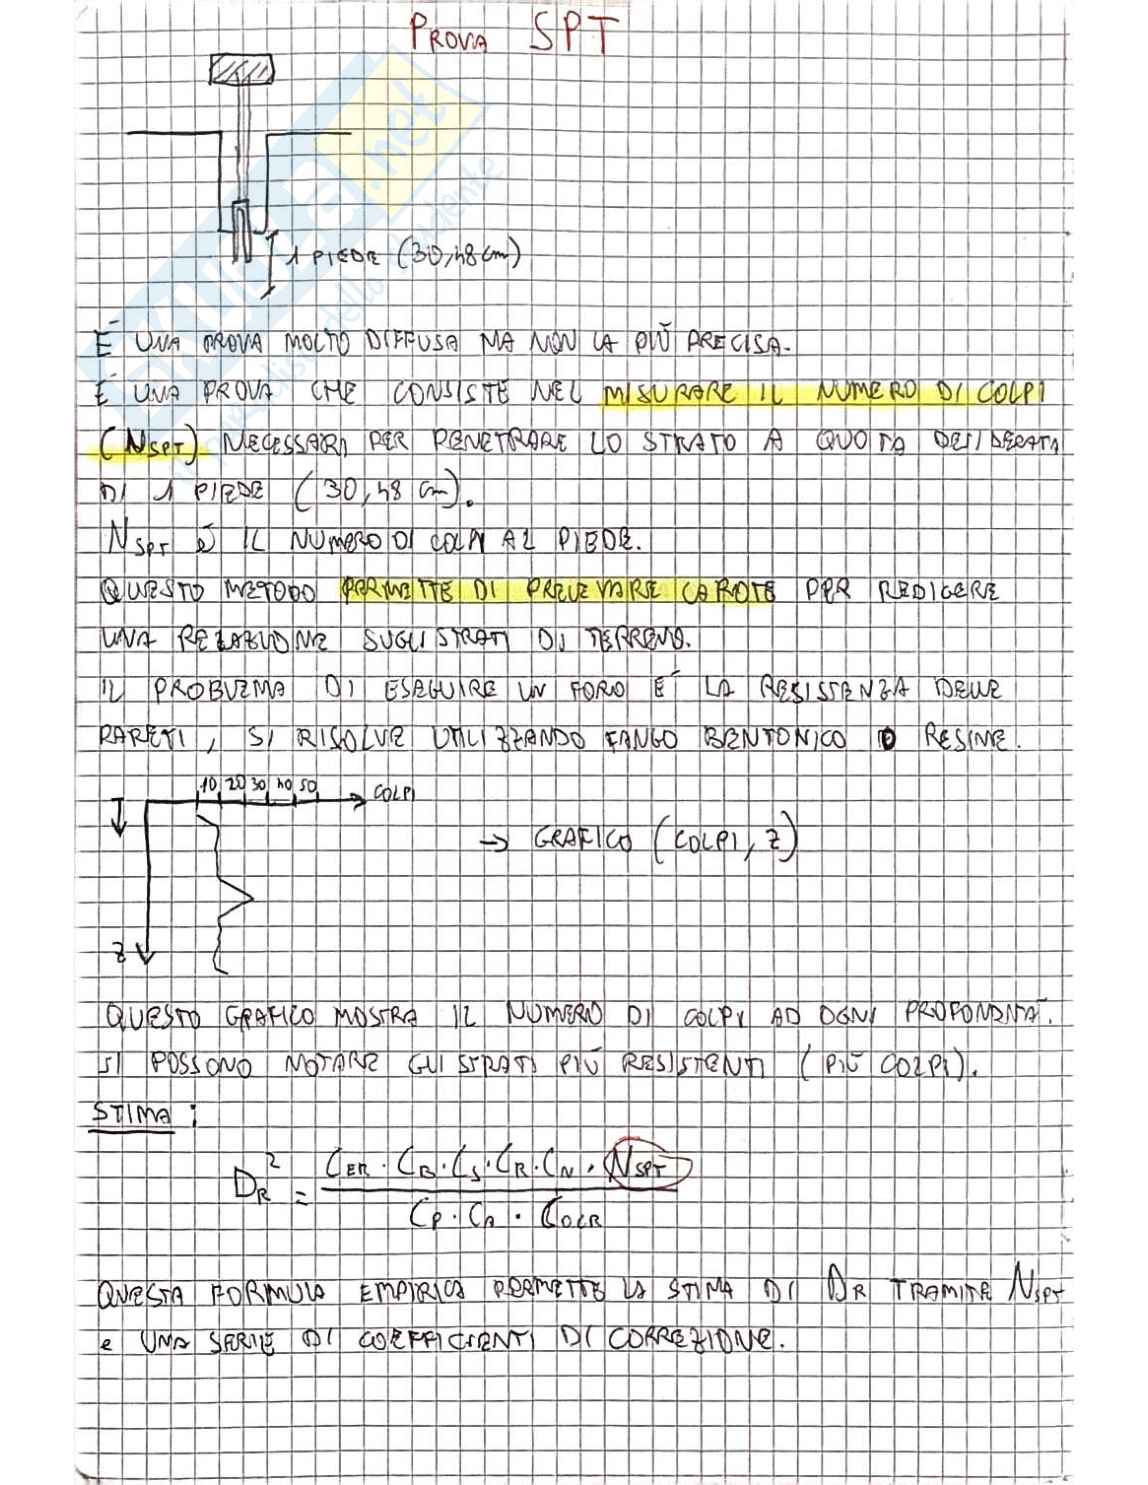 PROVA SPT
1 PIEDE (30,48 cm)
È UNA PROVA MOLTO DIFFUSA MA NON LA PIÙ PRECISA.
È UNA PROVA CHE CONSISTE NEL MISURARE IL NUMERO DI COLPI
(NSPT) NECESSARI PER PENETRARE LO STRATO A QUOTA DESIDERATA
DI 1 PIEDE (30,48 cm).
NSPT È IL NUMERO DI COLPI AL PIEDE.
QUESTO METODO PERMETTE DI PRELEVARE CAROTE PER REDIGERE
UNA RELAZIONE SUGLI STRATI DI TERRENO.
IL PROBLEMA DI ESEGUIRE UN FORO È LA RESISTENZA DELLE
PARETI, SI RISOLVE UTILIZZANDO FANGO BENTONICO O RESINE.
10 20 30 40 50 COLPI
→ GRAFICO (COLPI, Z)
Z
QUESTO GRAFICO MOSTRA IL NUMERO DI COLPI AD OGNI PROFONDITÀ.
SI POSSONO NOTARE GLI STRATI PIÙ RESISTENTI (PIÙ COLPI).
STIMA:
DR² = CER · CB · CS · CR · CN · NSPT
CP · CA · COCR
QUESTA FORMULA EMPIRICA PERMETTE LA STIMA DI DR TRAMITE NSPT
e UNA SERIE DI COEFFICIENTI DI CORREZIONE.